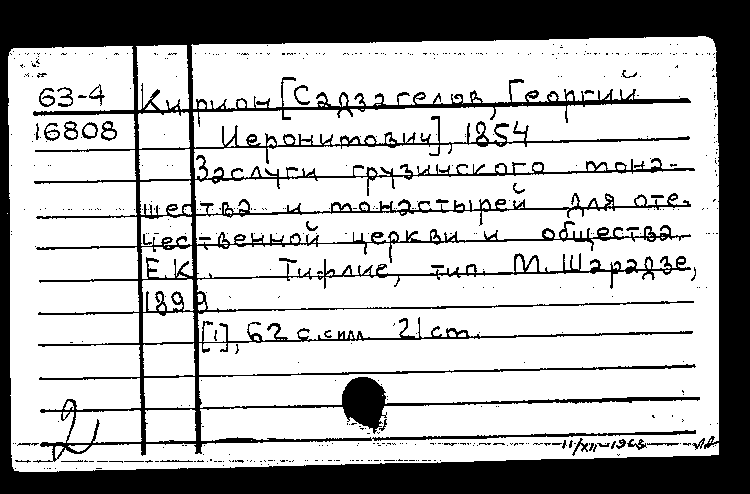 63-4 Кирион [Садзагелов, Георгий
16808 Иеронимович], 1854
Заслуги грузинского мона-
шества и монастырей для оте-
чественной церкви и общества.
Е.К. Тифлис, тип. М. Шарадзе,
1899.
[1], 62 с. с илл. 21 cm.
2
11/XII-1963